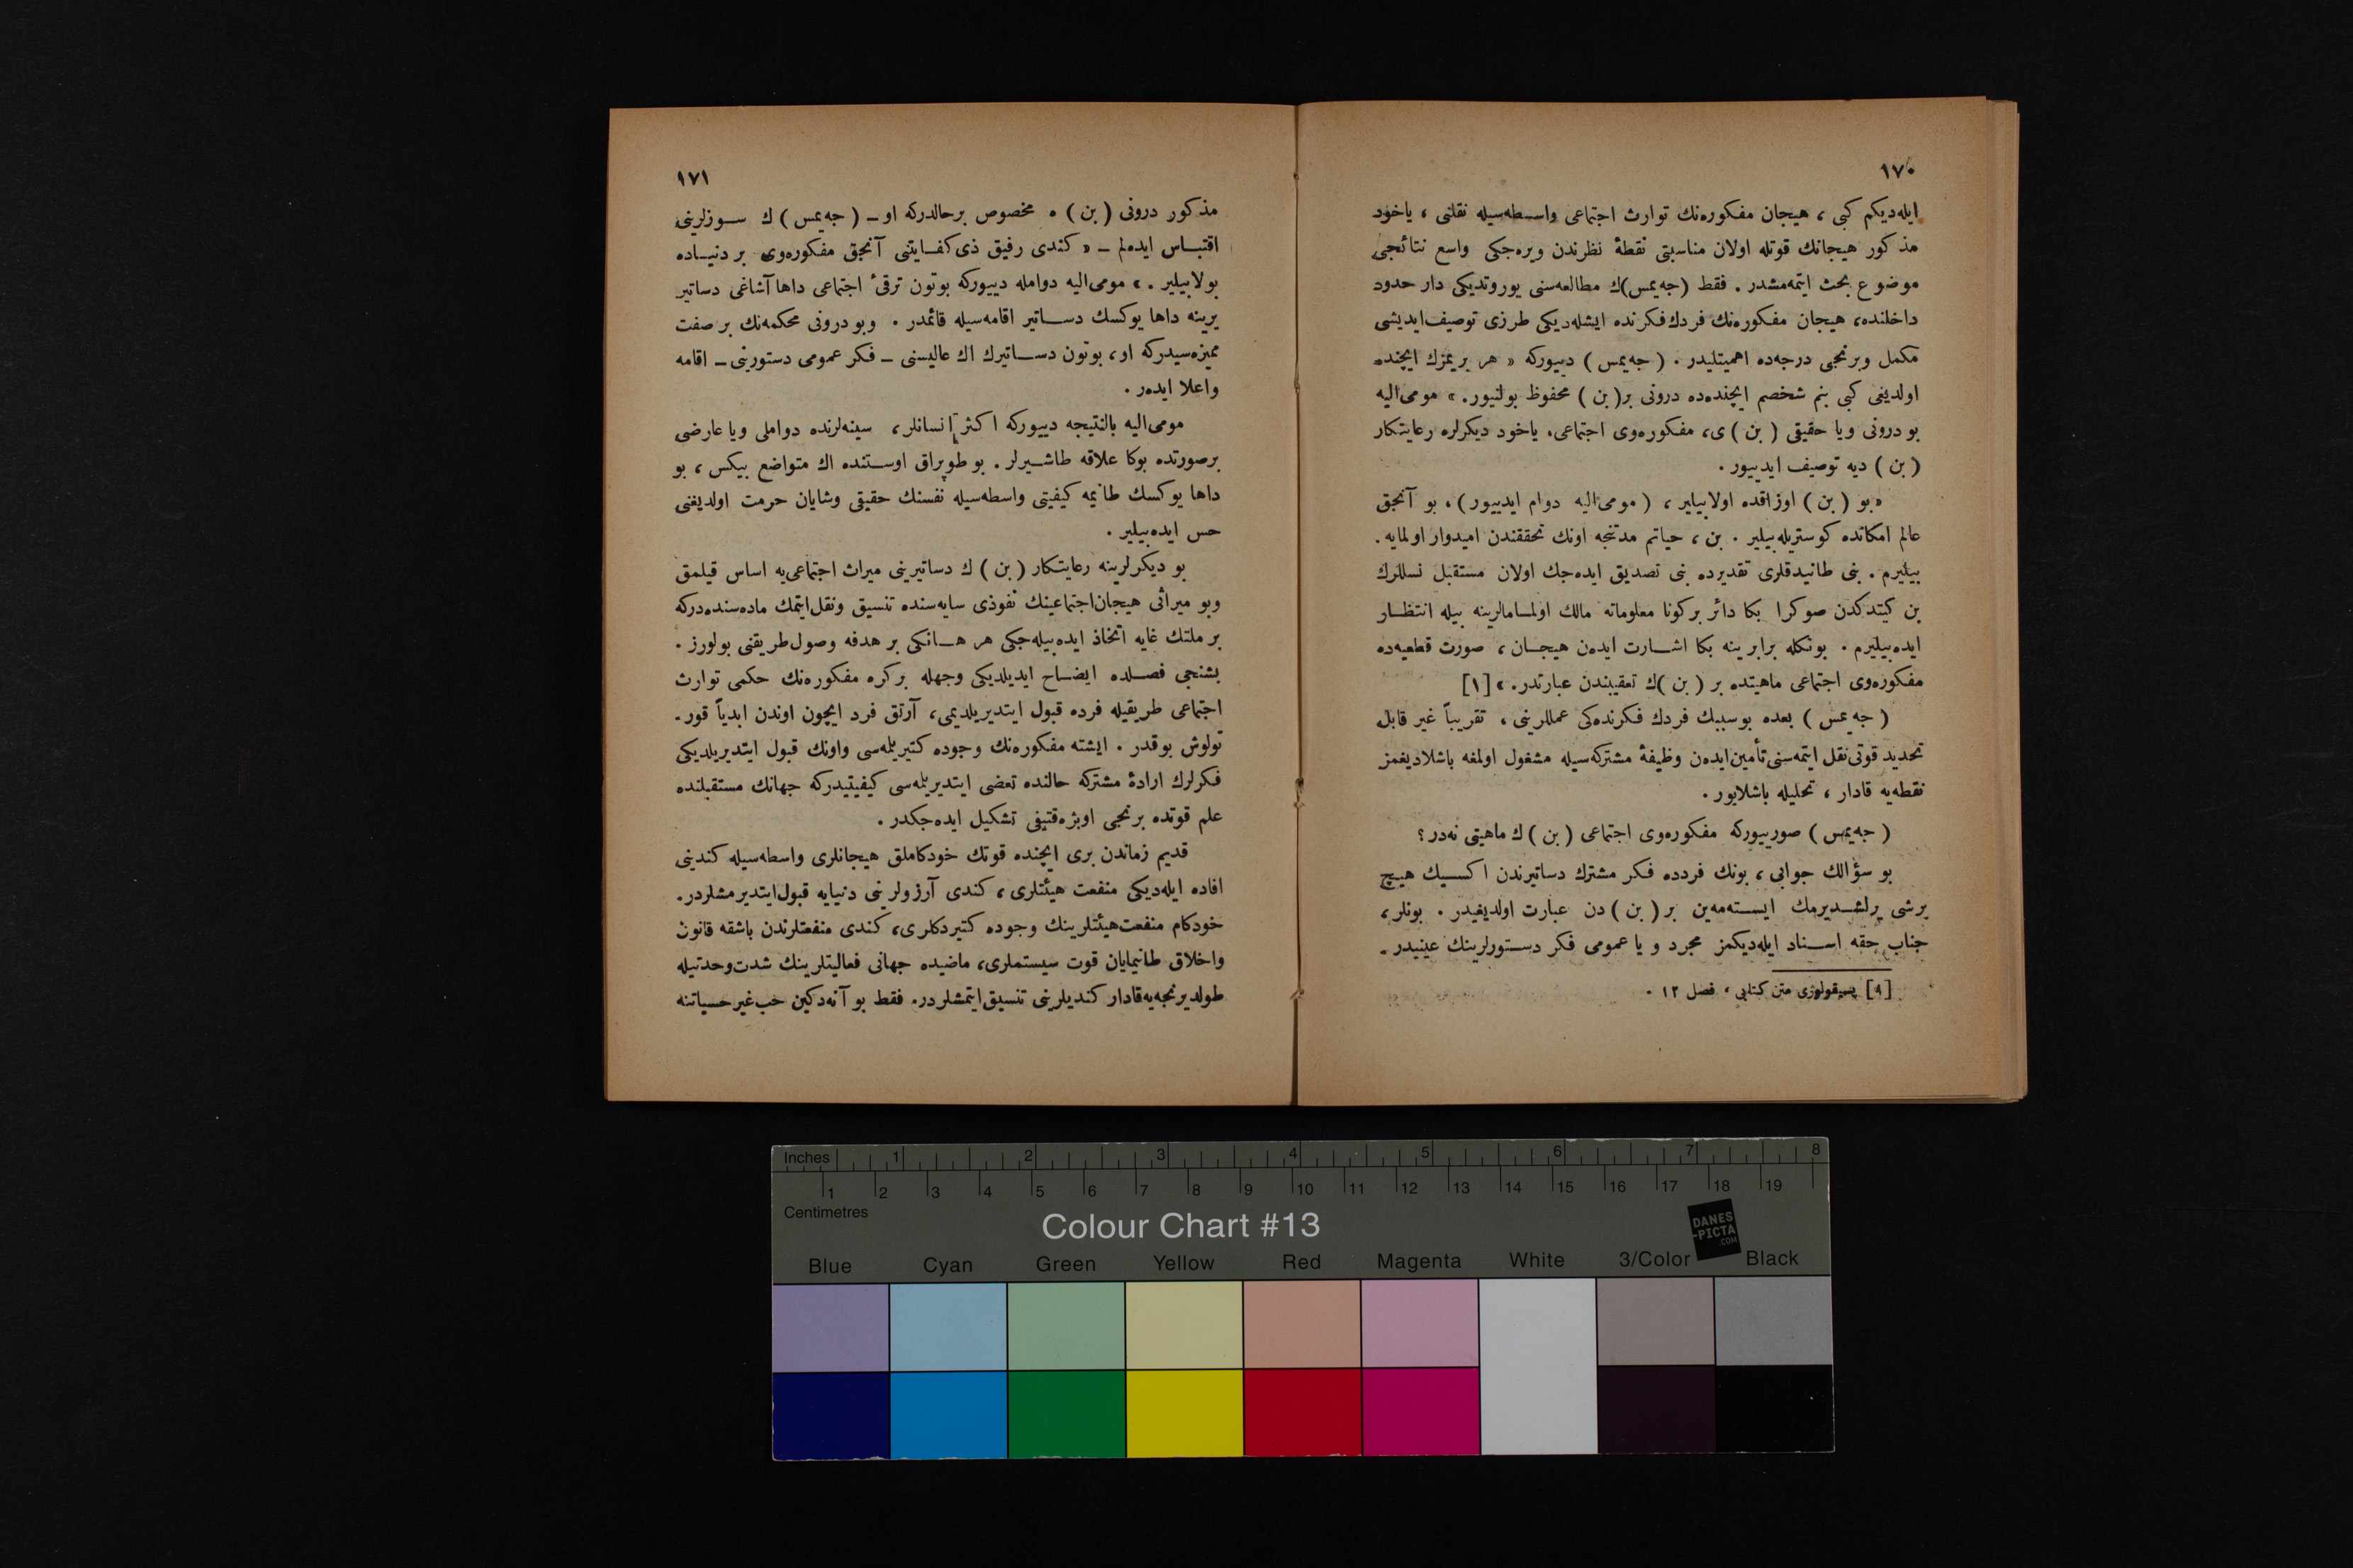 ١٧٠
ايله‌ديكم كبى ، هيجان مفكوره‌نك توارث اجتماعى واسطه‌سيله نقلنى ، ياخود
مذكور هيجانك قوتله اولان مناسبتى نقطهٔ نظرندن ويره‌جكى واسع نتائجى
موضوع بحث ايتمه‌مشدر . فقط (جه‌يمس)ك مطالعه‌سنى يوروتديكى دار حدود
داخلنده، هيجان مفكوره‌نك فردك فكرنده ايشله‌ديكى طرزى توصيف ايديشى
مكمل وبرنجى درجه‌ده اهميتليدر . (جه‌يمس) دييوركه « هر بريمزك ايچنده
اولديغى كبى بنم شخصم ايچنده‌ده درونى بر(بن) محفوظ بولنيور. » مومى‌اليه
بو درونى ويا حقيقى (بن)ى، مفكوره‌وى اجتماعى، ياخود ديكرلره رعايتكار
(بن) ديه توصيف ايدييور .
«بو (بن) اوزاقده اولابيلير ، (مومى‌اليه دوام ايدييور) ، بو آنجق
عالم امكانده كوستريله‌بيلير . بن ، حياتم مدتنجه اونك تحققندن اميدوار اولمايه .
بيليرم . بنى طانيدقلرى تقديرده بنى تصديق ايده‌جك اولان مستقبل نسللرك
بن كيتدكدن صوكرا بكا دائر بركونا معلوماته مالك اولمامالرينه بيله انتظار
ايده‌بيليرم . بونكله برابر ينه بكا اشارت ايدەن هيجان ، صورت قطعيه‌ده
مفكوره‌وى اجتماعى ماهيتده بر (بن)ك تعقيبندن عبارتدر. » [١]
(جه‌يمس) بعده بوسببك فردك فكرنده‌كى عمللرينى ، تقريباً غير قابل
تحديد قوتى نقل ايتمه‌سنى تأمين ايدەن وظيفهٔ مشتركه‌سيله مشغول اولمغه باشلاديغمز
نقطه‌يه قادار ، تحليله باشلايور .
(جه‌يمس) صورييوركه مفكوره‌وى اجتماعى (بن)ك ماهيتى نه‌در ؟
بو سؤالك جوابى ، بونك فردده فكر مشترك دساتيرندن اكسيك هيچ
برشى يرلشديرمك ايسته‌مه‌ين بر (بن) دن عبارت اولديغيدر . بونلر ،
جناب حقه اسناد ايله‌ديكمز مجرد و يا عمومى فكر دستورلرينك عينيدر .
[١] پسيقولوژى متن كتابى ، فصل ١٢ .
١٧١
مذكور درونى (بن) ه مخصوص برحالدركه او – (جه‌يمس) ك سوزلرينى
اقتباس ايده‌لم – « كندى رفيق ذى كفايتنى آنجق مفكوره‌وى بر دنياده
بولابيلير . » مومى‌اليه دوامله دييوركه بوتون ترقئ اجتماعى داها آشاغى دساتير
يرينه داها يوكسك دساتير اقامه‌سيله قائمدر . وبو درونى محكمه‌نك بر صفت
مميزه‌سيدركه او ، بوتون دساتيرك اك عاليسنى – فكر عمومى دستورينى – اقامه
واعلا ايدەر .
مومى‌اليه بالنتيجه دييوركه اكثر انسانلر ، سينه‌لرنده دواملى ويا عارضى
برصورتده بوكا علاقه طاشيرلر . بو طوپراق اوستنده اك متواضع بيكس ، بو
داها يوكسك طانيمه كيفيتى واسطه‌سيله نفسنك حقيقى وشايان حرمت اولديغنى
حس ايده‌بيلير .
بو ديكرلرينه رعايتكار (بن) ك دساتيرينى ميراث اجتماعى‌يه اساس قيلمق
وبو ميراثى هيجان اجتماعينك نفوذى سايه‌سنده تنسيق ونقل ايتمك ماده‌سنده‌دركه
بر ملتك غايه اتخاذ ايده‌بيله‌جكى هر هانكى بر هدفه وصول طريقنى بولورز .
بشنجى فصلده ايضاح ايديلديكى وجهله بركره مفكوره‌نك حكمى توارث
اجتماعى طريقيله فرده قبول ايتديريلديمى ، آرتق فرد ايچون اوندن ابدياً قور-
تولوش يوقدر . ايشته مفكوره‌نك وجوده كتيريلمه‌سى واونك قبول ايتديريلديكى
فكرلرك ارادهٔ مشتركه حالنده تعضى ايتديريلمه‌سى كيفيتيدركه جهانك مستقبلنده
علم قوتده برنجى اوبژه‌قتيفى تشكيل ايده‌جكدر .
قديم زماندن برى ايچنده قوتك خودكاملق هيجانلرى واسطه‌سيله كندينى
افاده ايله‌ديكى منفعت هيئتلرى ، كندى آرزولرينى دنيايه قبول ايتديرمشلردر .
خودكام منفعت هيئتلرينك وجوده كتيردكلرى ، كندى منفعتلرندن باشقه قانون
واخلاق طانيمايان قوت سيستملرى ، ماضيده جهانى فعاليتلرينك شدت وحدتيله
طولديرنجه‌يه قادار كنديلرينى تنسيق ايتمشلردر . فقط بو آنه‌دكين حب غير حسياتنه
Inches 1 2 3 4 5 6 7 8
1 2 3 4 5 6 7 8 9 10 11 12 13 14 15 16 17 18 19
Centimetres
Colour Chart #13
DANES
-PICTA
.COM
Blue Cyan Green Yellow Red Magenta White 3/Color Black